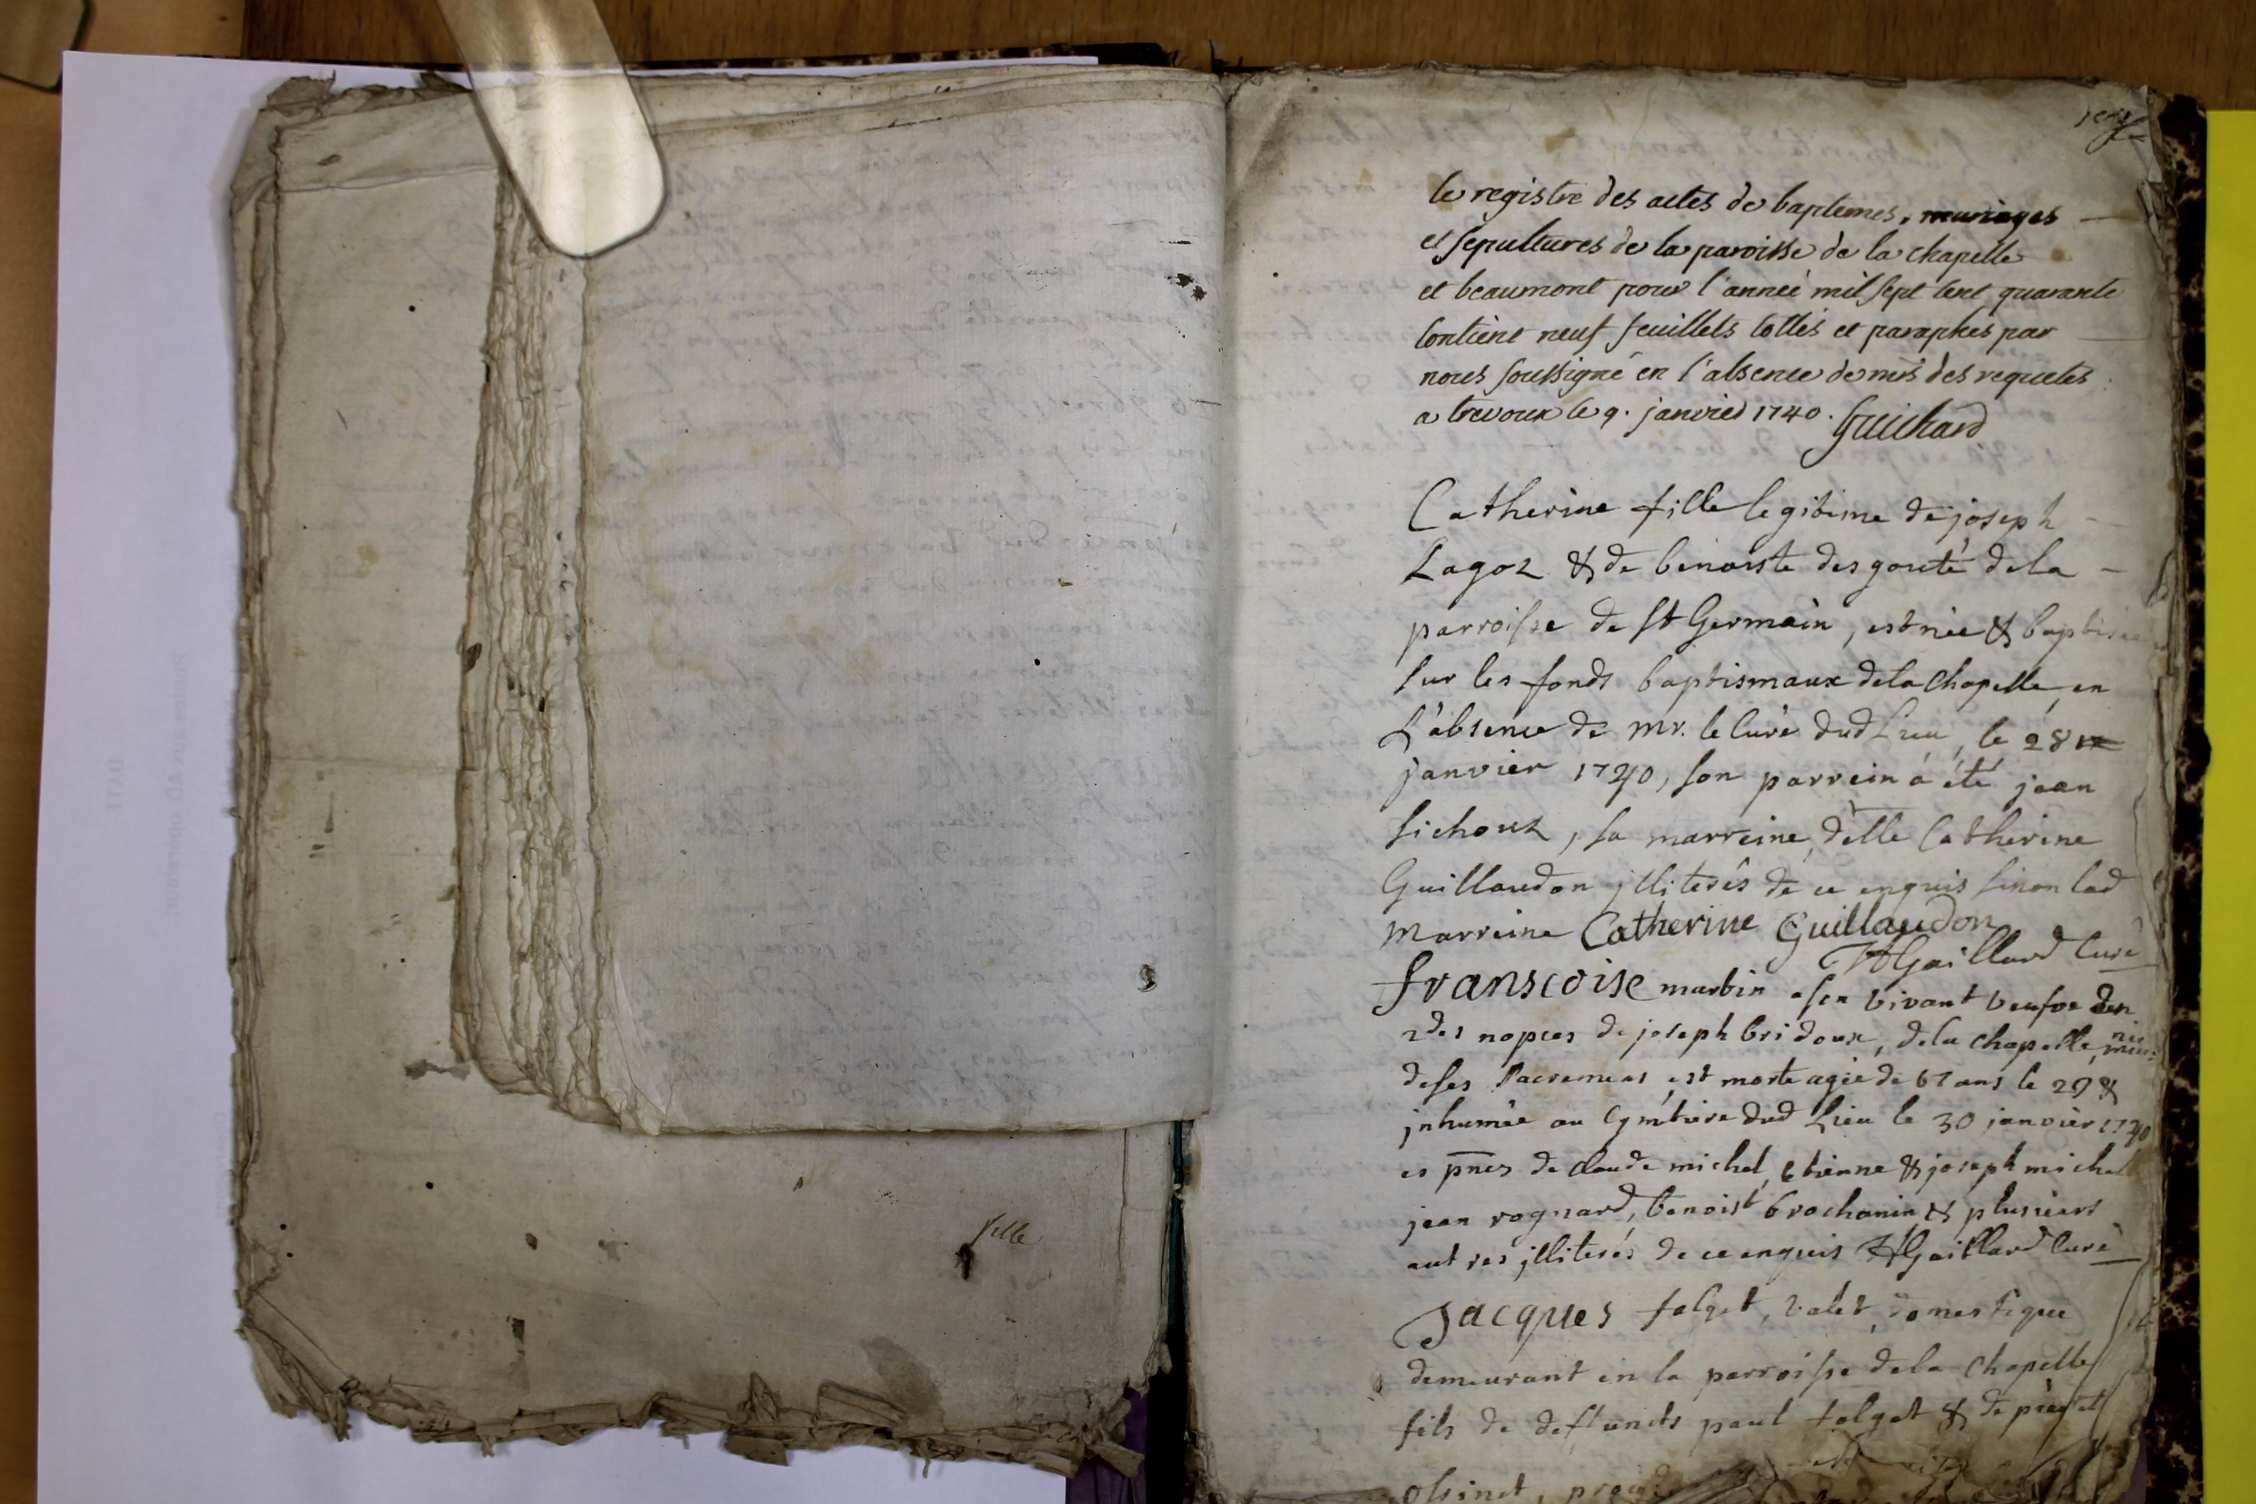 fille
1er
le registre des actes de baptemes, mariages
et sepultures de la paroisse de la chapelle
et beaumont pour l'année mil sept cent quarante
contient neuf feuillets cottés et paraphes par
nous soussigné en l'absence de mrs des requetes
a trevoux le 9. janvier 1740. Guichard
Catherine fille legitime de joseph
Lagoz & de benoiste desgouté de la
parroisse de St Germain, est née & baptisée
sur les fonds baptismaux de la Chapelle en
L'absence de mr. le Curé dud Lieu, le 28
janvier 1740, son parrein á été jean
sichoux, sa marreine, d'elle Catherine
Guillaudon jlliterés de ce enquis sinon lad
marreine Catherine Guillaudon
Gaillard Curé
franscoise martin en vivant veufve en
2des nopces de joseph bridoux, de la Chapelle, munie
de ses Sacremens, est morte agée de 67 ans le 29 &
jnhumée au Cymtiere dud Lieu le 30 janvier 1740
es pnces de claude michel, etienne & joseph michel
jean rognard, benoist brochanin & plusieurs
autres jlliterés de ce enquis Gaillard Curé
Jacques folget, valet, domestique
demeurant en la parroisse de la Chapelle
fils de deffuncts paul folget & de